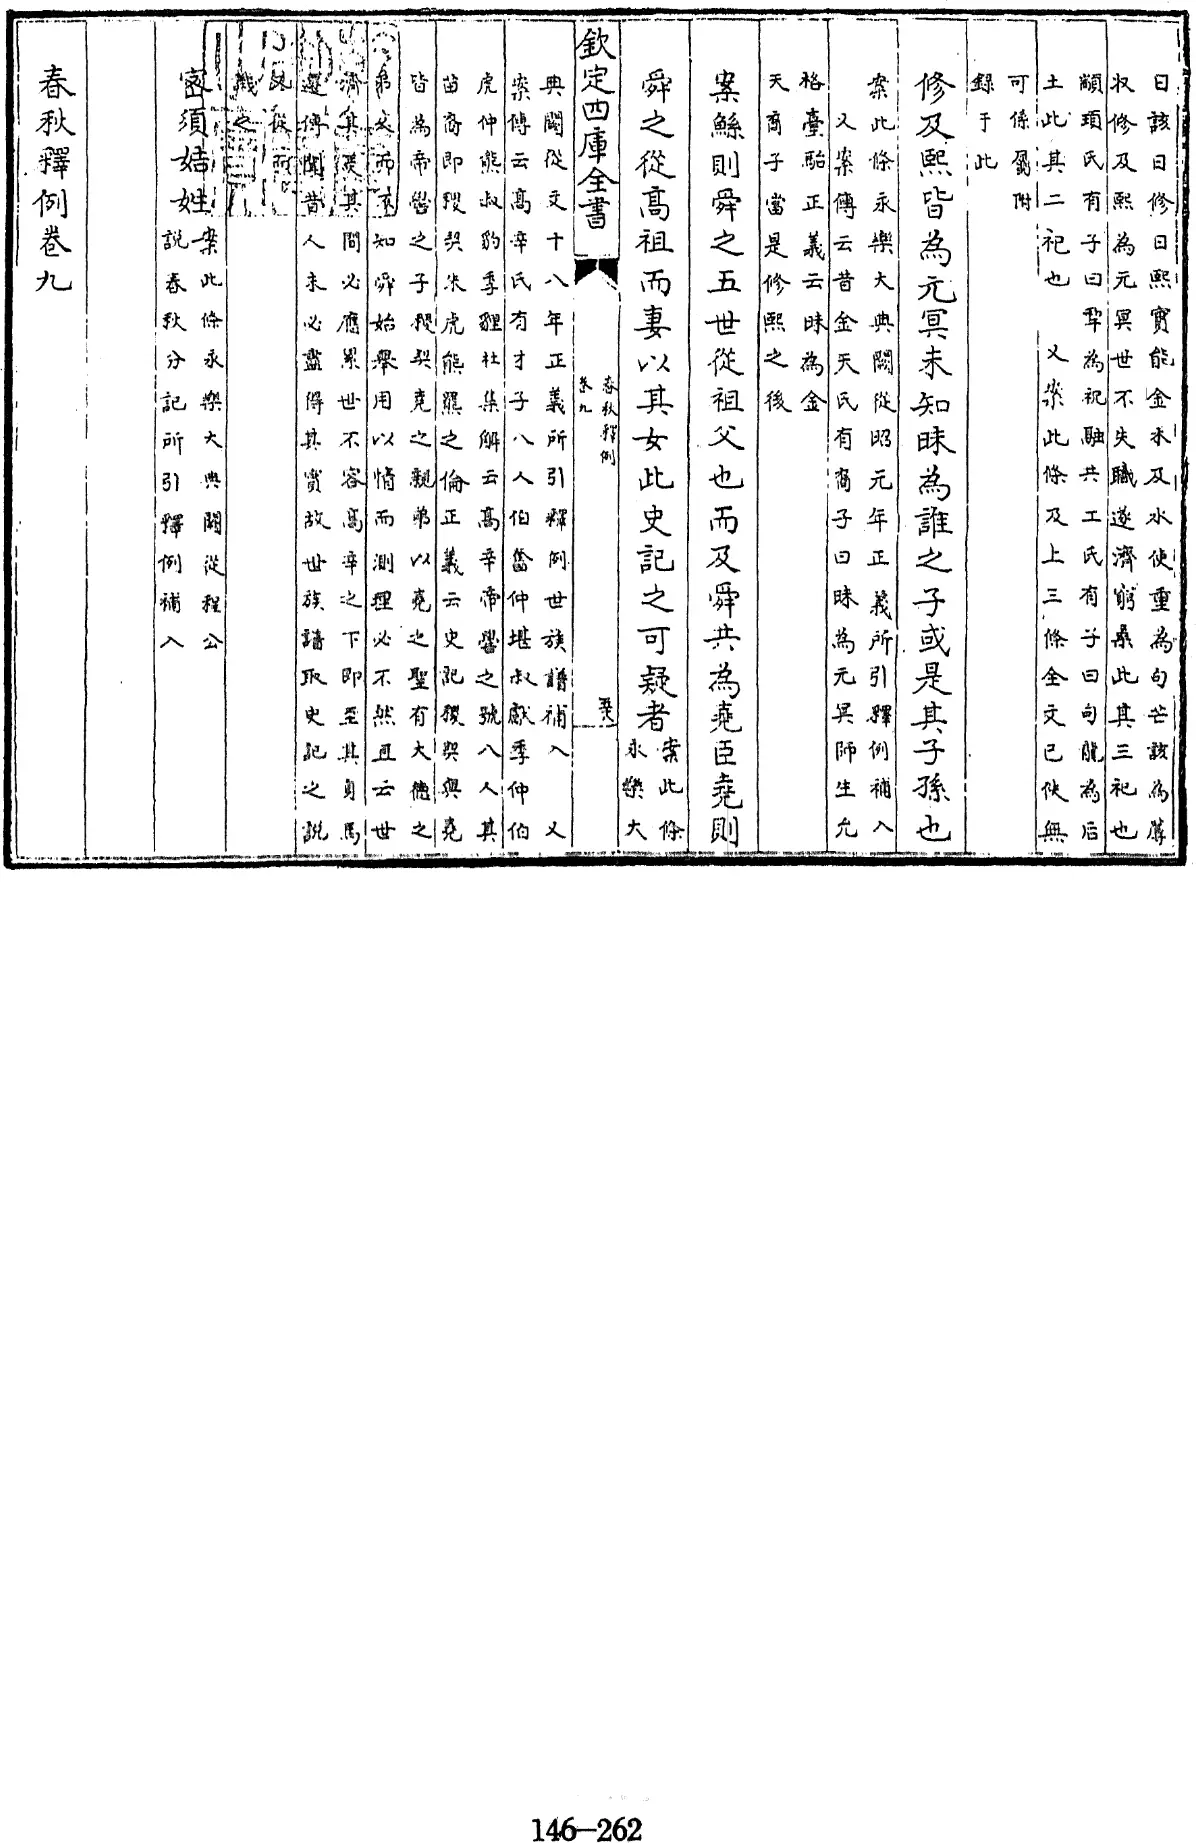 曰該曰修曰熙實能金木及水使重為句芒該為蓐
收修及熙為元冥世不失職遂濟窮桑此其三祀也
顓頊氏有子曰犂為祝融共工氏有子曰句龍為后
土此其二祀也　又案此條及上三條全文已佚無
可係屬附
錄于此
修及熙皆為元冥未知昧為誰之子或是其子孫也
案此條永樂大典闕從昭元年正義所引釋例補入
又案傳云昔金天氏有裔子曰昧為元冥師生允
格臺駘正義云昧為金
天裔子當是修熙之後
案鯀則舜之五世從祖父也而及舜共為堯臣堯則
舜之從高祖而妻以其女此史記之可疑者
案此條
永樂大
欽定四庫全書
春秋釋例
卷九
典闕從文十八年正義所引釋例世族譜補入　又
案傳云高辛氏有才子八人伯奮仲堪叔獻季仲伯
虎仲熊叔豹季貍杜集解云高辛帝嚳之號八人其
苗裔即稷契朱虎熊羆之倫正義云史記稷契與堯
皆為帝嚳之子稷契堯之親弟以堯之聖有大德之
弟久而不知舜始舉用以情而測理必不然且云世
濟其美其間必應累世不容高辛之下即至其身馬
遷傳聞昔人未必盡得其實故世族譜取史記之説
密須姞姓
案此條永樂大典闕從程公
說春秋分記所引釋例補入
春秋釋例卷九
146-262